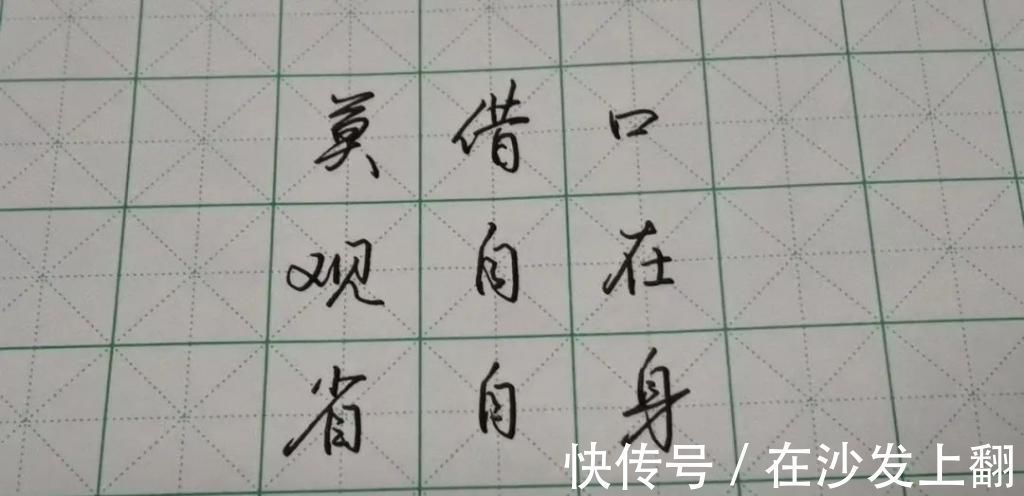 莫借口
观自在
省自身
快传号/在沙发上翻